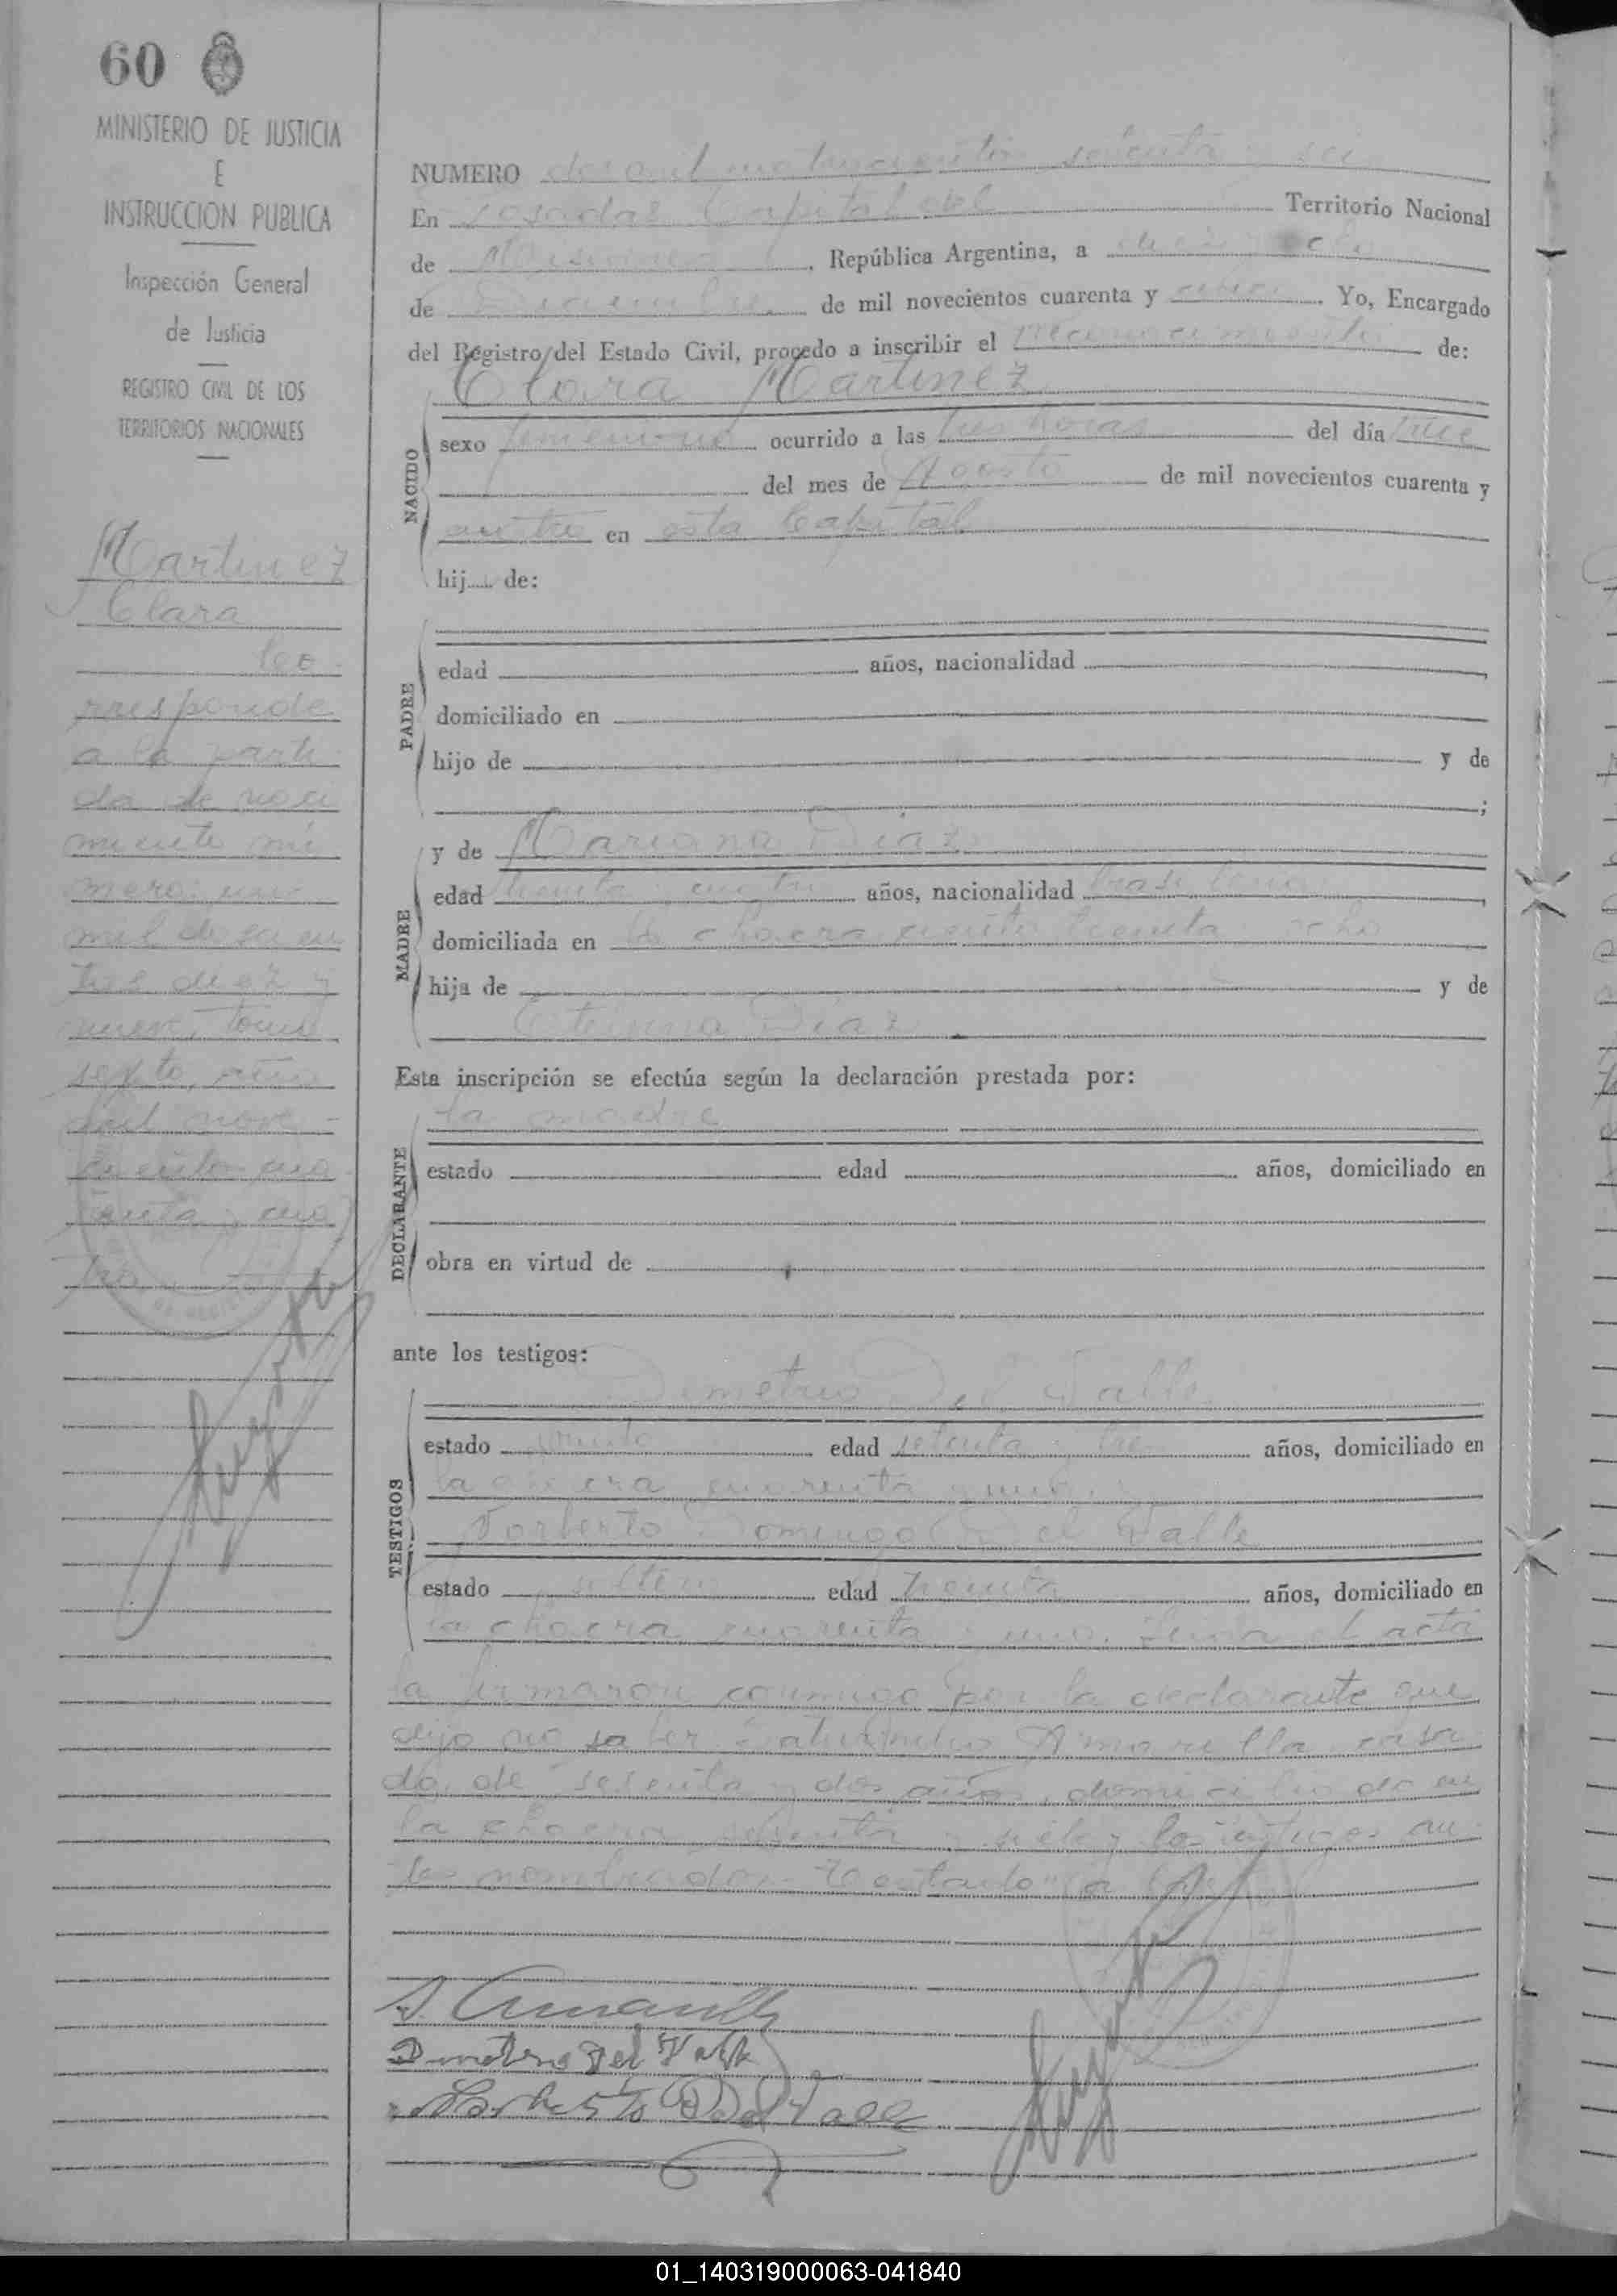 60
MINISTERIO DE JUSTICIA
E
INSTRUCCION PUBLICA
Inspección General
de Justicia
REGISTRO CIVIL DE LOS
TERRITORIOS NACIONALES
Martinez
Clara
Co
rresponde
a la parti
da de naci
miento nú
mero: un
mil doscien
tos diez y
nueve, tomo
sexto, año
mil nove-
cientos cua
renta y cua
tro
NUMERO dos mil cuatrocientos setenta y seis
En Posadas Capital del Territorio Nacional
de Misiones, República Argentina, a diez y ocho
de Diciembre de mil novecientos cuarenta y Yo, Encargado
del Registro del Estado Civil, procedo a inscribir el reconocimiento de:
Clara Martinez
NACIDO
sexo femenino ocurrido a las tres horas del día trece
del mes de Agosto de mil novecientos cuarenta y
cuatro en esta Capital
hij..... de:
PADRE
edad años, nacionalidad
domiciliado en
hijo de y de
;
MADRE
y de Mariana Diaz
edad treinta y cuatro años, nacionalidad brasileña,
domiciliada en la chacra ciento treinta y ocho
hija de y de
Diaz.
Esta inscripción se efectúa según la declaración prestada por:
la madre
DECLARANTE
estado edad años, domiciliado en
obra en virtud de
ante los testigos:
Demetrio Del Valle
TESTIGOS
estado viudo edad setenta y tres años, domiciliado en
la chacra cuarenta y uno.
Norberto Domingo Del Valle
estado soltero edad treinta años, domiciliado en
la chacra cuarenta y uno. Leida el acta
la firmaron conmigo por la declarante que
dijo no saber Saturnino Amarilla casa
do, de sesenta y dos años, domiciliado en
la chacra sesenta y siete y los testigos an
tes nombrados. Testado: "a
S. Amarilla
Demetrio Del Valle
Norberto D. del Valle
01_140319000063-041840